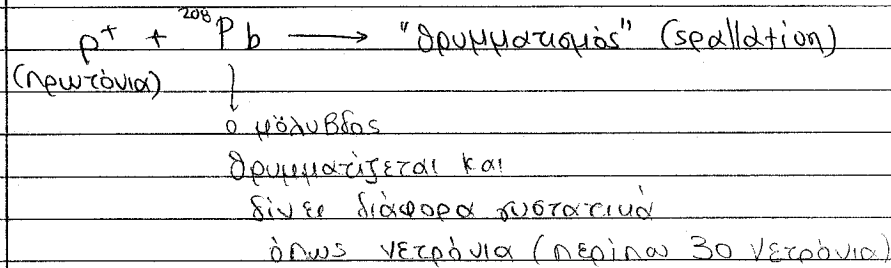 p⁺ + ²⁰⁸Pb ⟶ "θρυμματισμός" (spallation)
(πρωτόνια)
ο μόλυβδος
θρυμματίζεται και
δίνει διάφορα συστατικά
όπως νετρόνια (περίπου 30 νετρόνια)